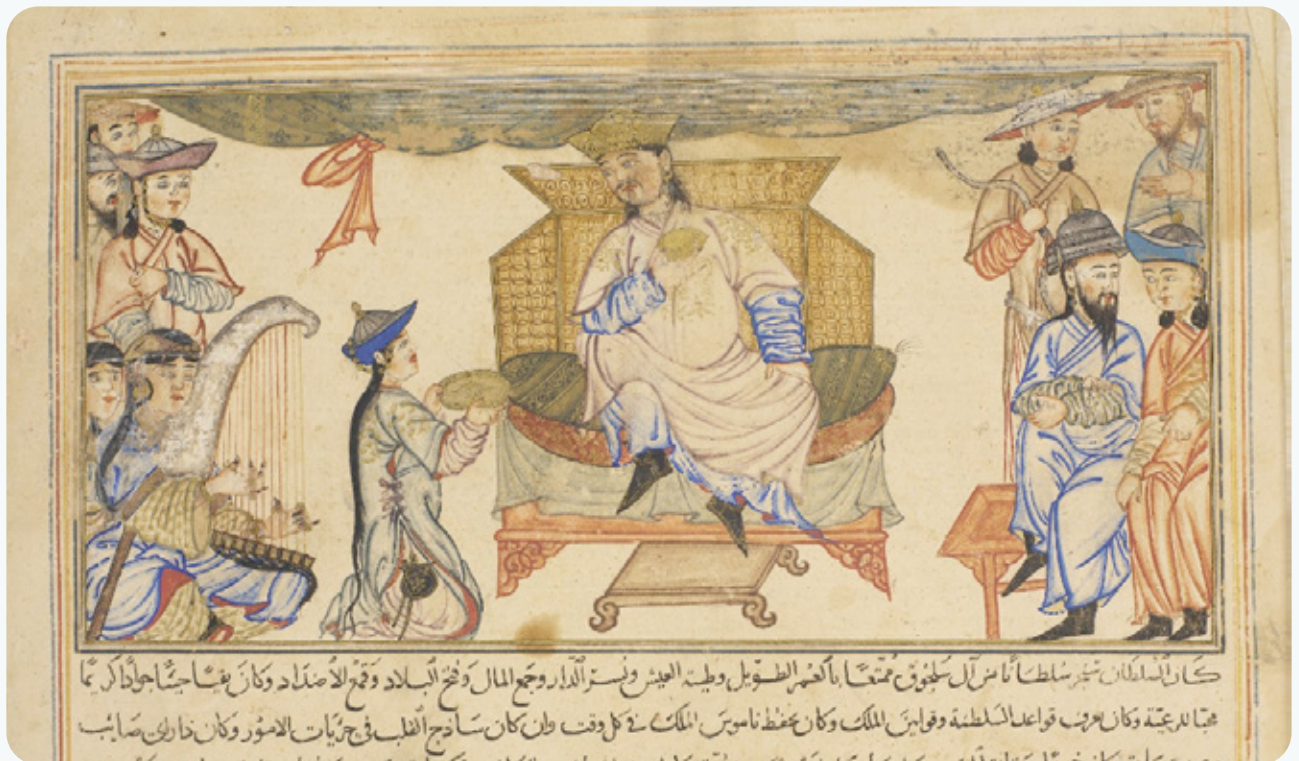 كان السلطان سنجر سلطانا من آل سلجوق ممتعا بالعمر الطويل وطيبة العيش ونسر الدار وجمع المال وفتح البلاد وقمع الاضداد وكان نقيا جوادا كريما
محبا للرعية وكان يعرف قواعد السلطنة وقوانين الملك وكان يحفظ ناموس الملك في كل وقت وان كان ساذج القلب في جزئيات الامور وكان ذا راي صايب